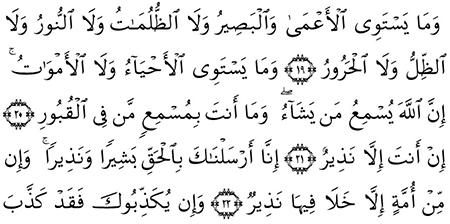 وَمَا يَسْتَوِى ٱلْأَعْمَىٰ وَٱلْبَصِيرُ وَلَا ٱلظُّلُمَـٰتُ وَلَا ٱلنُّورُ وَلَا
ٱلظِّلُّ وَلَا ٱلْحَرُورُ ﴿١٩﴾ وَمَا يَسْتَوِى ٱلْأَحْيَآءُ وَلَا ٱلْأَمْوَٰتُ ۚ
إِنَّ ٱللَّهَ يُسْمِعُ مَن يَشَآءُ ۖ وَمَآ أَنتَ بِمُسْمِعٍ مَّن فِى ٱلْقُبُورِ ﴿٢٠﴾
إِنْ أَنتَ إِلَّا نَذِيرٌ ﴿٢١﴾ إِنَّآ أَرْسَلْنَـٰكَ بِٱلْحَقِّ بَشِيرًا وَنَذِيرًا ۚ وَإِن
مِّنْ أُمَّةٍ إِلَّا خَلَا فِيهَا نَذِيرٌ ﴿٢٢﴾ وَإِن يُكَذِّبُوكَ فَقَدْ كَذَّبَ